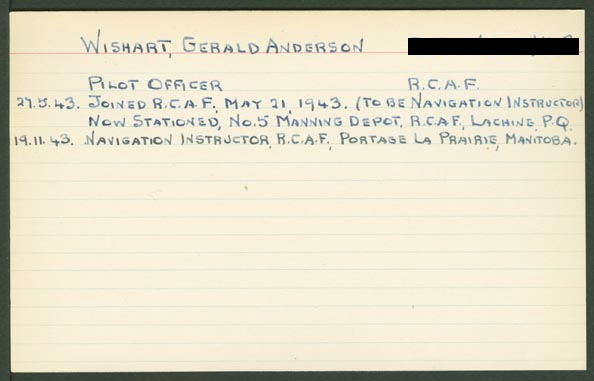 WISHART, GERALD ANDERSON
PILOT OFFICER R.C.A.F.
27.5.43. JOINED R.C.A.F, MAY 21, 1943. (TO BE NAVIGATION INSTRUCTOR)
NOW STATIONED, NO.5 MANNING DEPOT, R.C.A.F, LACHINE, P.Q.
19.11.43. NAVIGATION INSTRUCTOR, R.C.A.F, PORTAGE LA PRAIRIE, MANITOBA.